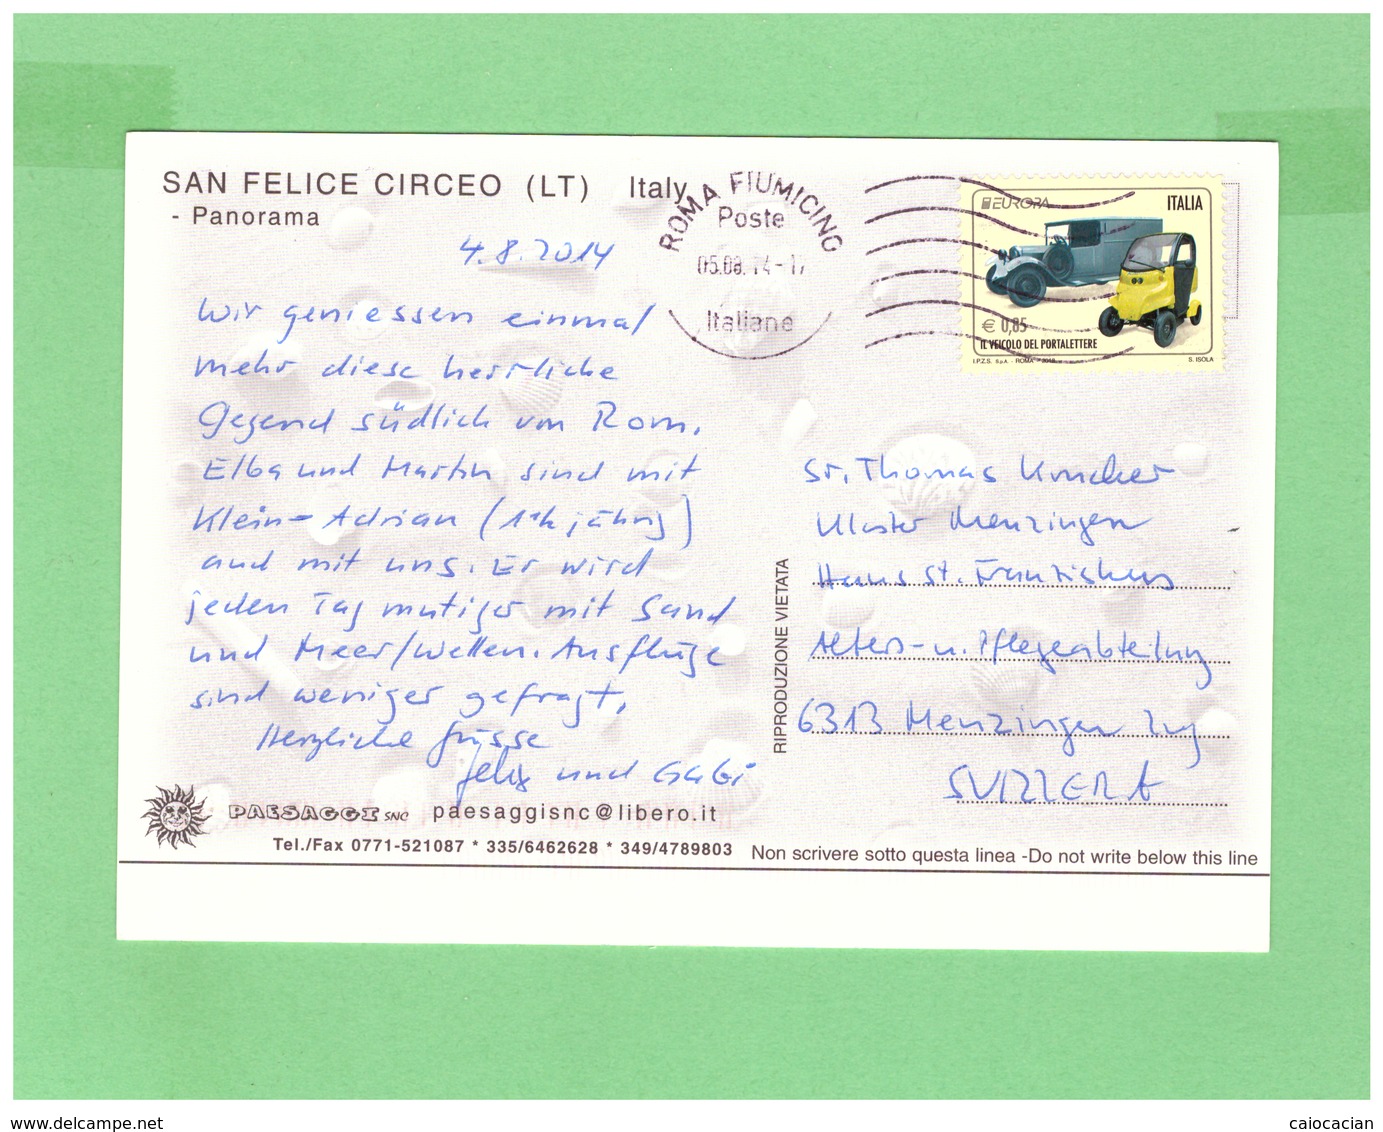 SAN FELICE CIRCEO (LT) Italy
- Panorama
4.8.2014
Wir geniessen einmal
mehr diese herrliche
Gegend südlich von Rom.
Elba und Martin sind mit
Klein-Adrian (1½ jährig)
auch mit uns. Er wird
jeden Tag mutiger mit Sand
und Meer/Wellen. Ausflüge
sind weniger gefragt.
Herzliche Grüsse
Felix und Gabi
PAESAGGI SNC paesaggisnc@libero.it
Tel./Fax 0771-521087 * 335/6462628 * 349/4789803
ROMA FIUMICINO
Poste
05.08.14-17
Italiane
EUROPA ITALIA
€ 0,85
IL VEICOLO DEL PORTALETTERE
I.P.Z.S. S.p.A. - ROMA - 2013 S. ISOLA
RIPRODUZIONE VIETATA
Sr. Thomas
Kloster Menzingen
Haus St. Franziskus
Alters- u. Pflegeabteilung
6313 Menzingen Zug
SVIZZERA
Non scrivere sotto questa linea -Do not write below this line
www.delcampe.net
caiocacian